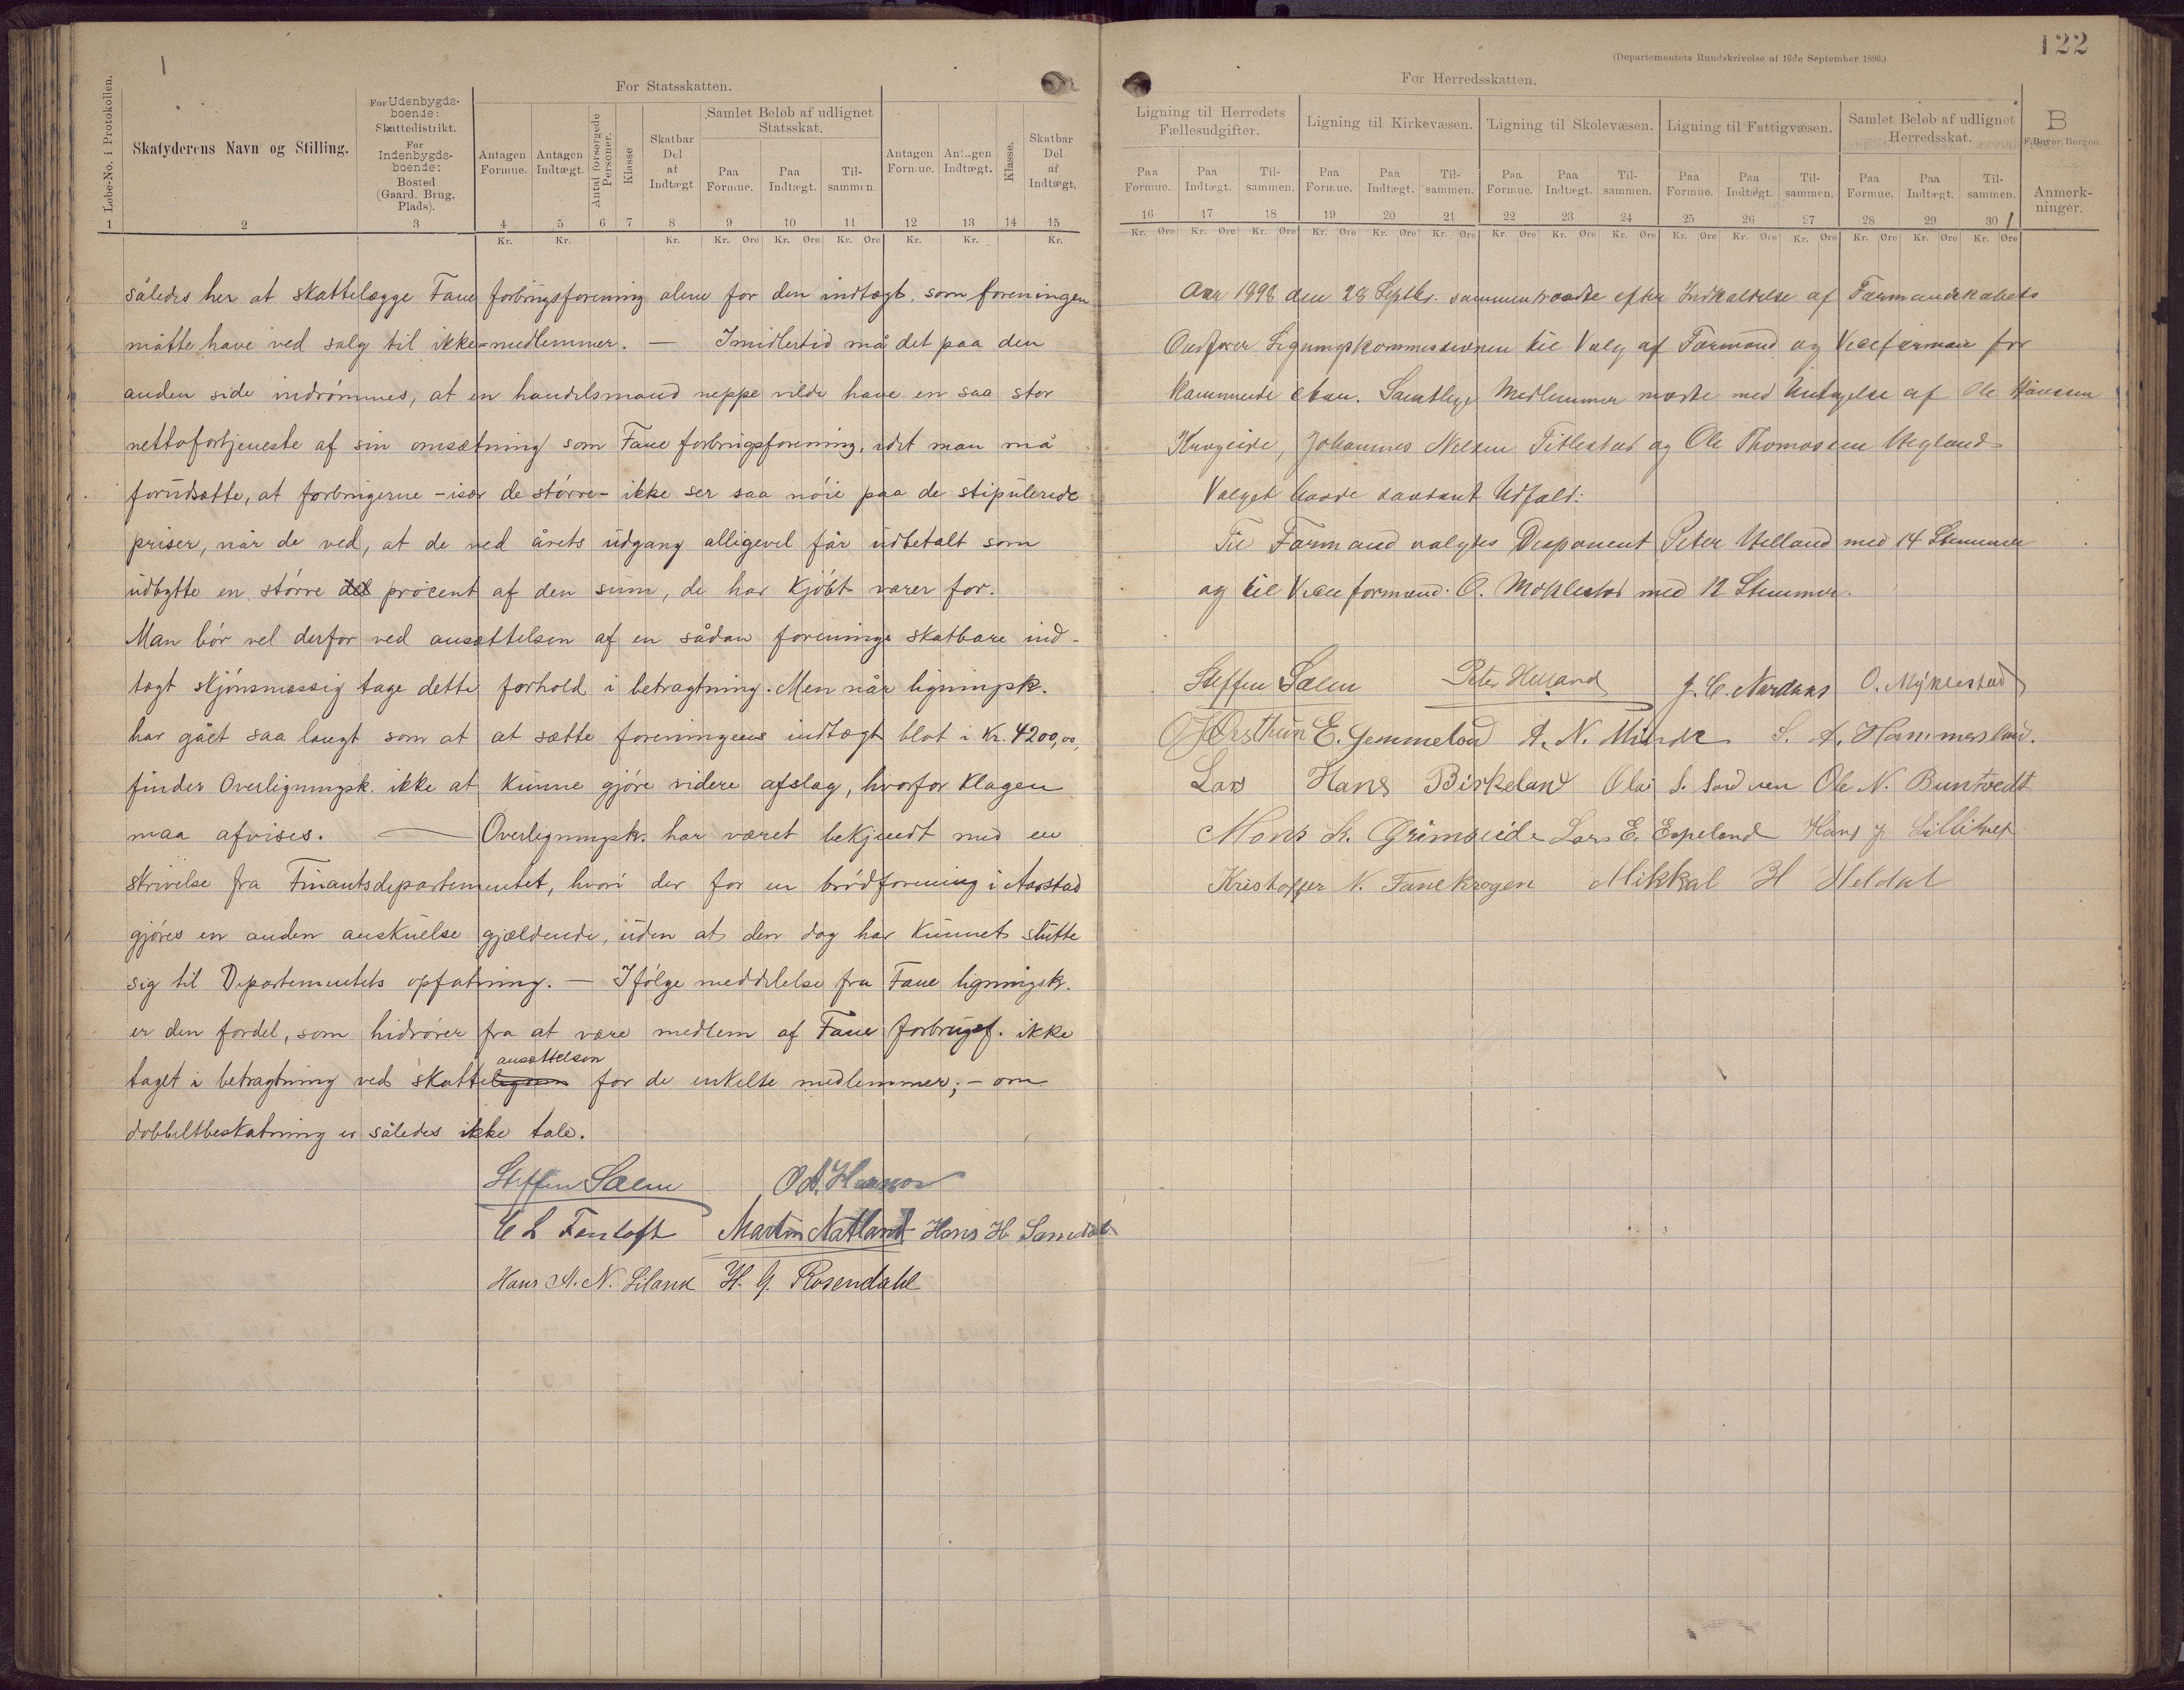 122
(Departementets Rundskrivelse af 16de September 1896.)
For Statsskatten.
For Herredsskatten.
Løbe-No. i Protokollen.
Skatyderens Navn og Stilling.
For Udenbygds-
boende:
Skattedistrikt.
For
Indenbygds-
boende:
Bosted
(Gaard. Brug,
Plads).
Antagen
Formue.
Antagen
Indtægt.
Antal forsørgede
Personer.
Klasse
Skatbar
Del
af
Indtægt
Samlet Beløb af udlignet
Statsskat.
Paa
Formue.
Paa
Indtægt.
Til-
sammen.
Antagen
Formue.
Antagen
Indtægt.
Klasse.
Skatbar
Del
af
Indtægt.
1 2 3 4 5 6 7 8 9 10 11 12 13 14 15
Kr. Kr. Kr. Kr. Øre Kr. Øre Kr. Øre Kr. Kr. Kr.
således her at skattelægge Fane forbrugsforening alene for den indtægt, som foreningen
måtte have ved salg til ikke-medlemmer. — Imidlertid må det paa den
anden side indrømmes, at en handelsmand neppe vilde have en saa stor
nettofortjeneste af sin omsætning som Fane forbrugsforening, idet man må
forudsætte, at forbrugerne - især de større - ikke ser saa nøie paa de stipulerede
priser, når de ved, at de ved årets udgang alligevel får udbetalt som
udbytte en større del procent af den sum, de har kjøbt varer for.
Man bør vel derfor ved ansættelsen af en sådan forenings skatbare ind-
tægt skjønsmæssig tage dette forhold i betragtning. Men når ligningsk.
har gået saa langt som at at sætte foreningens indtægt blot i Kr. 4200,00,
finder Overligningsk. ikke at kunne gjøre videre afslag, hvorfor klagen
maa afvises. — Overligningsk. har været bekjendt med en
skrivelse fra Finantsdepartementet, hvori der for en brødforening i Aarstad
gjøres en anden anskuelse gjældende, uden at den dog har kunnet slutte
sig til Departementets opfatning. — Ifølge meddelelse fra Fane ligningsk.
er den fordel, som hidrører fra at være medlem af Fane forbrugsf. ikke
ansættelsen
taget i betragtning ved skatte for de enkelte medlemmer; - om
dobbeltbeskatning er således ikke tale.
Steffen Sælen O. A. Hansen
C L Fantoft Martin Natland Hans H. Samdal
Hans A. N. Liland H. G. Rosendahl
Ligning til Herredets
Fællesudgifter.
Ligning til Kirkevæsen.
Ligning til Skolevæsen.
Ligning til Fattigvæsen.
Samlet Beløb af udlignet
Herredsskat.
B
F. Beyer. Bergen.
Paa
Formue.
Paa
Indtægt.
Til-
sammen.
Paa
Formue.
Paa
Indtægt.
Til-
sammen.
Paa
Formue.
Paa
Indtægt.
Til-
sammen.
Paa
Formue.
Paa
Indtægt.
Til-
sammen.
Paa
Formue.
Paa
Indtægt.
Til-
sammen.
Anmerk-
ninger.
16 17 18 19 20 21 22 23 24 25 26 27 28 29 30
Kr. Øre Kr. Øre Kr. Øre Kr. Øre Kr. Øre Kr. Øre Kr. Øre Kr. Øre Kr. Øre Kr. Øre Kr. Øre Kr. Øre Kr. Øre Kr. Øre Kr. Øre
Aar 1898 den 28 Septbr. sammentraadte efter Indkaldelse af Formandskabets
Ordfører Ligningskommissionen til Valg af Formand og Viceformann for
kommende Aar. Samtlige Medlemmer mødte med Untagelse af Ole Hanssen
Krogeide, Johannes Nilsen Titlestad og Ole Thomassen Vegland
Valget havde saadant Udfald:
Til Formand valgtes Disponent Peter Helland med 14 Stemmer
og til Viceformand O. Myklestad med 12 Stemmer.
Steffen Sælen Peter Helland J. C. Nordaas O. Myklestad
E. Hammersland.
Lars Hans Birkeland Ole N. Buntvedt
Mons L. Grimseide Lars E. Espeland Hans J.
Kristoffer N. Fanekrogen Mikkal H Heldal